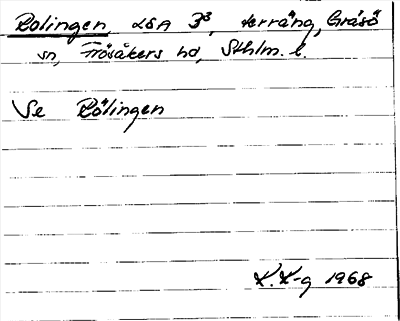 Rolingen LSA 3³, terräng, Gräsö
sn, Frösåkers hd, Sthlm. l.
Se Rölingen
K.K-g 1968